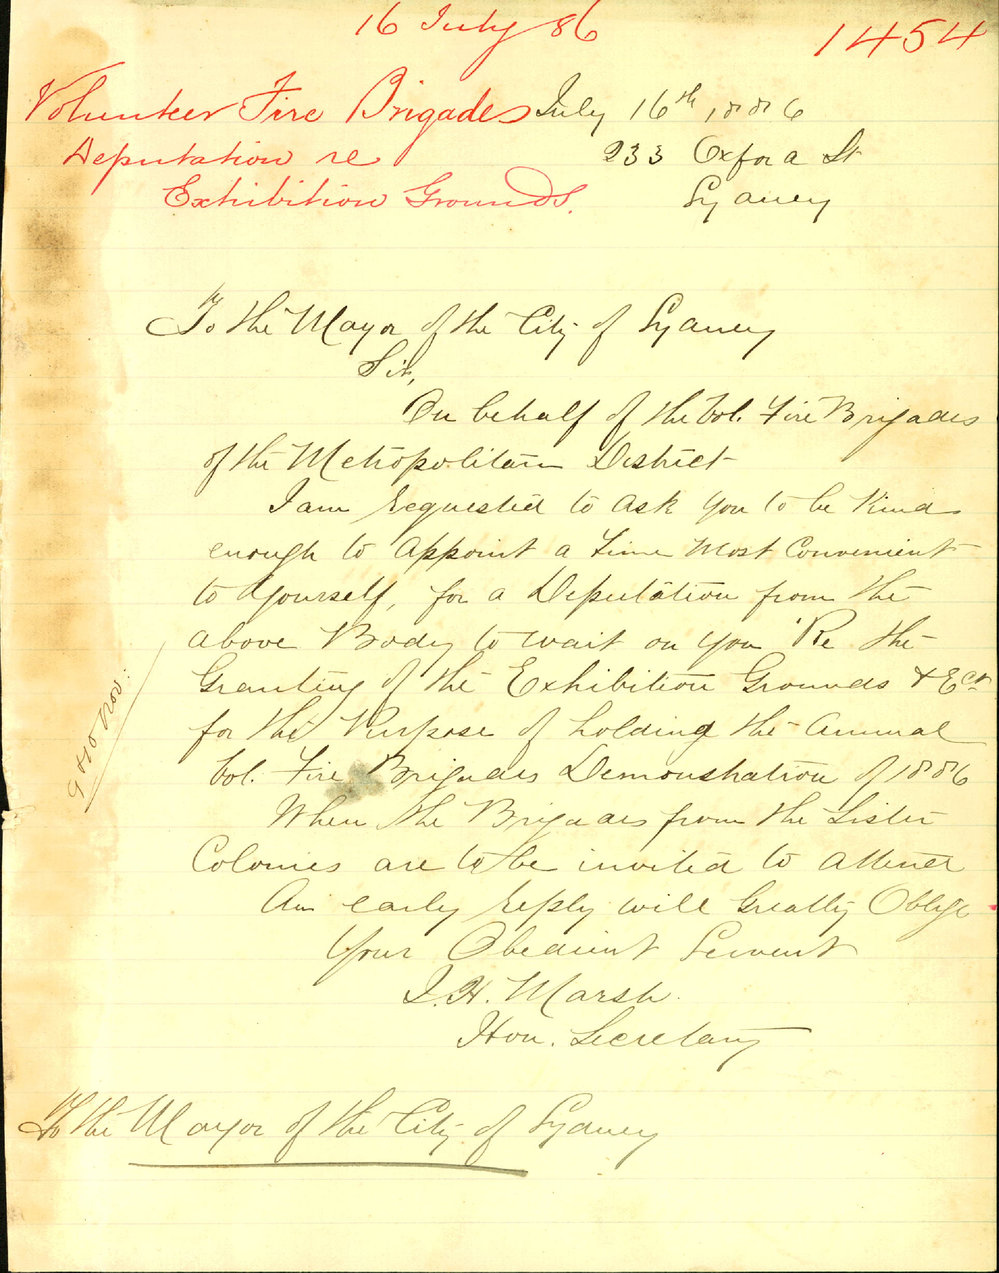 16 July 86
1454
Volunteer Fire Brigades
Deputation re
Exhibition Grounds.
July 16th, 1886
233 Oxford St
Sydney
To the Mayor of the City of Sydney
Sir,
On behalf of the Vol. Fire Brigades
of the Metropolitan District
I am requested to ask you to be Kind
enough to Appoint a time Most Convenient
to Yourself, for a Deputation from the
above Body to wait on you Re the
Granting of the Exhibition Grounds & Ect
for the Purpose of holding the Annual
Vol. Fire Brigades Demonstration of 1886
When the Brigades from the Sister
Colonies are to be invited to attend
An early reply will Greatly Oblige
Your Obedient Servent
J. H. Marsh.
Hon. Secretary
To the Mayor of the City of Sydney
Nov: